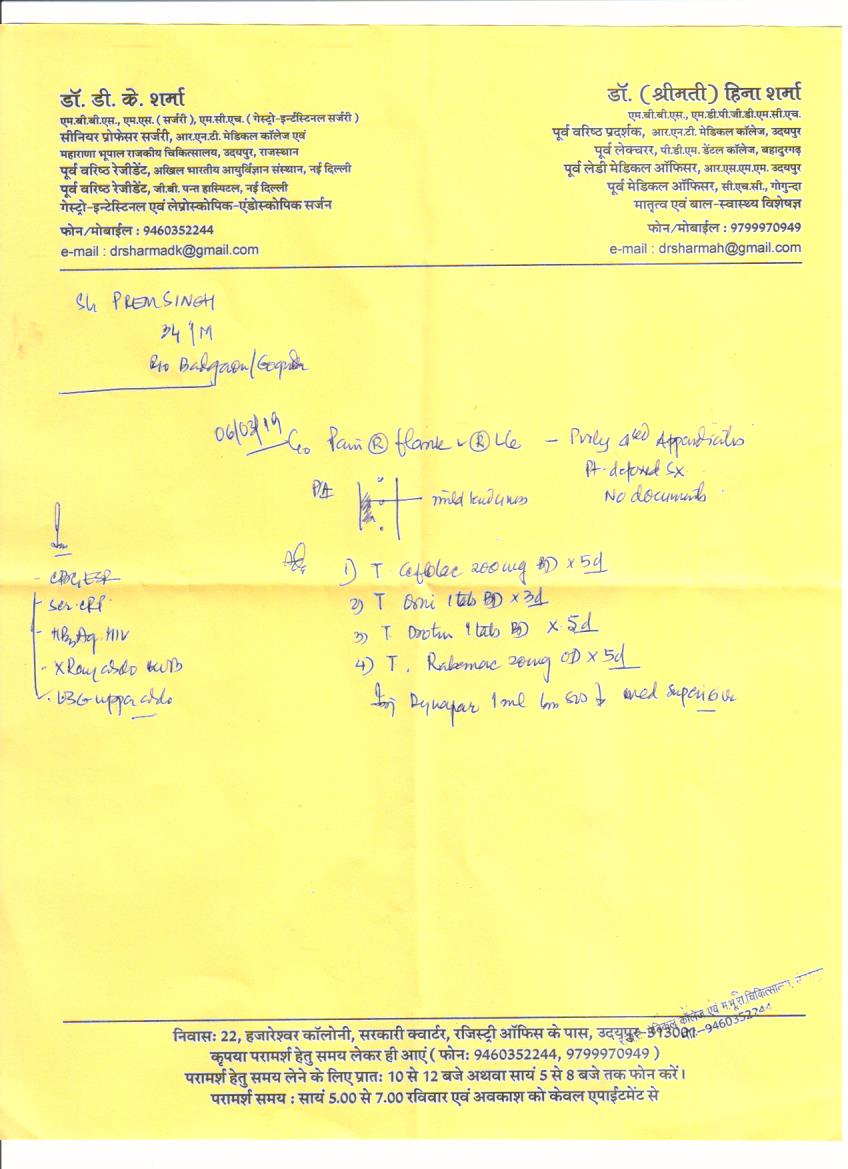 डॉ. डी. के. शर्मा
एम.बी.बी.एस., एम.एस. ( सर्जरी ), एम.सी.एच. ( गेस्ट्रो-इन्टेंस्टिनल सर्जरी )
सीनियर प्रोफेसर सर्जरी, आर.एन.टी. मेडिकल कॉलेज एवं
महाराणा भूपाल राजकीय चिकित्सालय, उदयपुर, राजस्थान
पूर्व वरिष्ठ रेजीडेंट, अखिल भारतीय आयुर्विज्ञान संस्थान, नई दिल्ली
पूर्व वरिष्ठ रेजीडेंट, जी.बी. पन्त हास्पिटल, नई दिल्ली
गेस्ट्रो-इन्टेस्टिनल एवं लेप्रोस्कोपिक-एंडोस्कोपिक सर्जन
फोन/मोबाईल : 9460352244
e-mail : drsharmadk@gmail.com
डॉ. (श्रीमती) हिना शर्मा
एम.बी.बी.एस., एम.डी.पी.जी.डी.एम.सी.एच.
पूर्व वरिष्ठ प्रदर्शक, आर.एन.टी. मेडिकल कॉलेज, उदयपुर
पूर्व लेक्चरर, पी.डी.एम. डेंटल कॉलेज, बहादुरगढ़
पूर्व लेडी मेडिकल ऑफिसर, आर.एस.एम.एम. उदयपुर
पूर्व मेडिकल ऑफिसर, सी.एच.सी., गोगुन्दा
मातृत्व एवं बाल-स्वास्थ्य विशेषज्ञ
फोन/मोबाईल : 9799970949
e-mail : drsharmah@gmail.com
Sh PREM SINGH
34 / M
R/o Badgaon/
06/03/19
C/o Pain Ⓡ flank Ⓡ - Appendicitis
Pt. Sx.
No documents
P/A
mild tenderness
Adv
1) T. 200mg BD x 5d
2) T Orni 1 tab BD x 3d
3) T. Drotin 1 tab BD x 5d
4) T. Rabemac 20mg OD x 5d
Inj Dynapar 1ml Im sos med
- CBC, ESR
- Ser. CRP
- HBsAg, HIV
- X Ray abdo KUB
- USG upper abdo
निवास: 22, हजारेश्वर कॉलोनी, सरकारी क्वार्टर, रजिस्ट्री ऑफिस के पास, उदयपुर-313001
कृपया परामर्श हेतु समय लेकर ही आएं ( फोन: 9460352244, 9799970949 )
परामर्श हेतु समय लेने के लिए प्रात: 10 से 12 बजे अथवा सायं 5 से 8 बजे तक फोन करें।
परामर्श समय : सायं 5.00 से 7.00 रविवार एवं अवकाश को केवल एपाईंटमेंट से
कॉलेज एवं म.भू.रा.चिकित्सालय,
9460352244